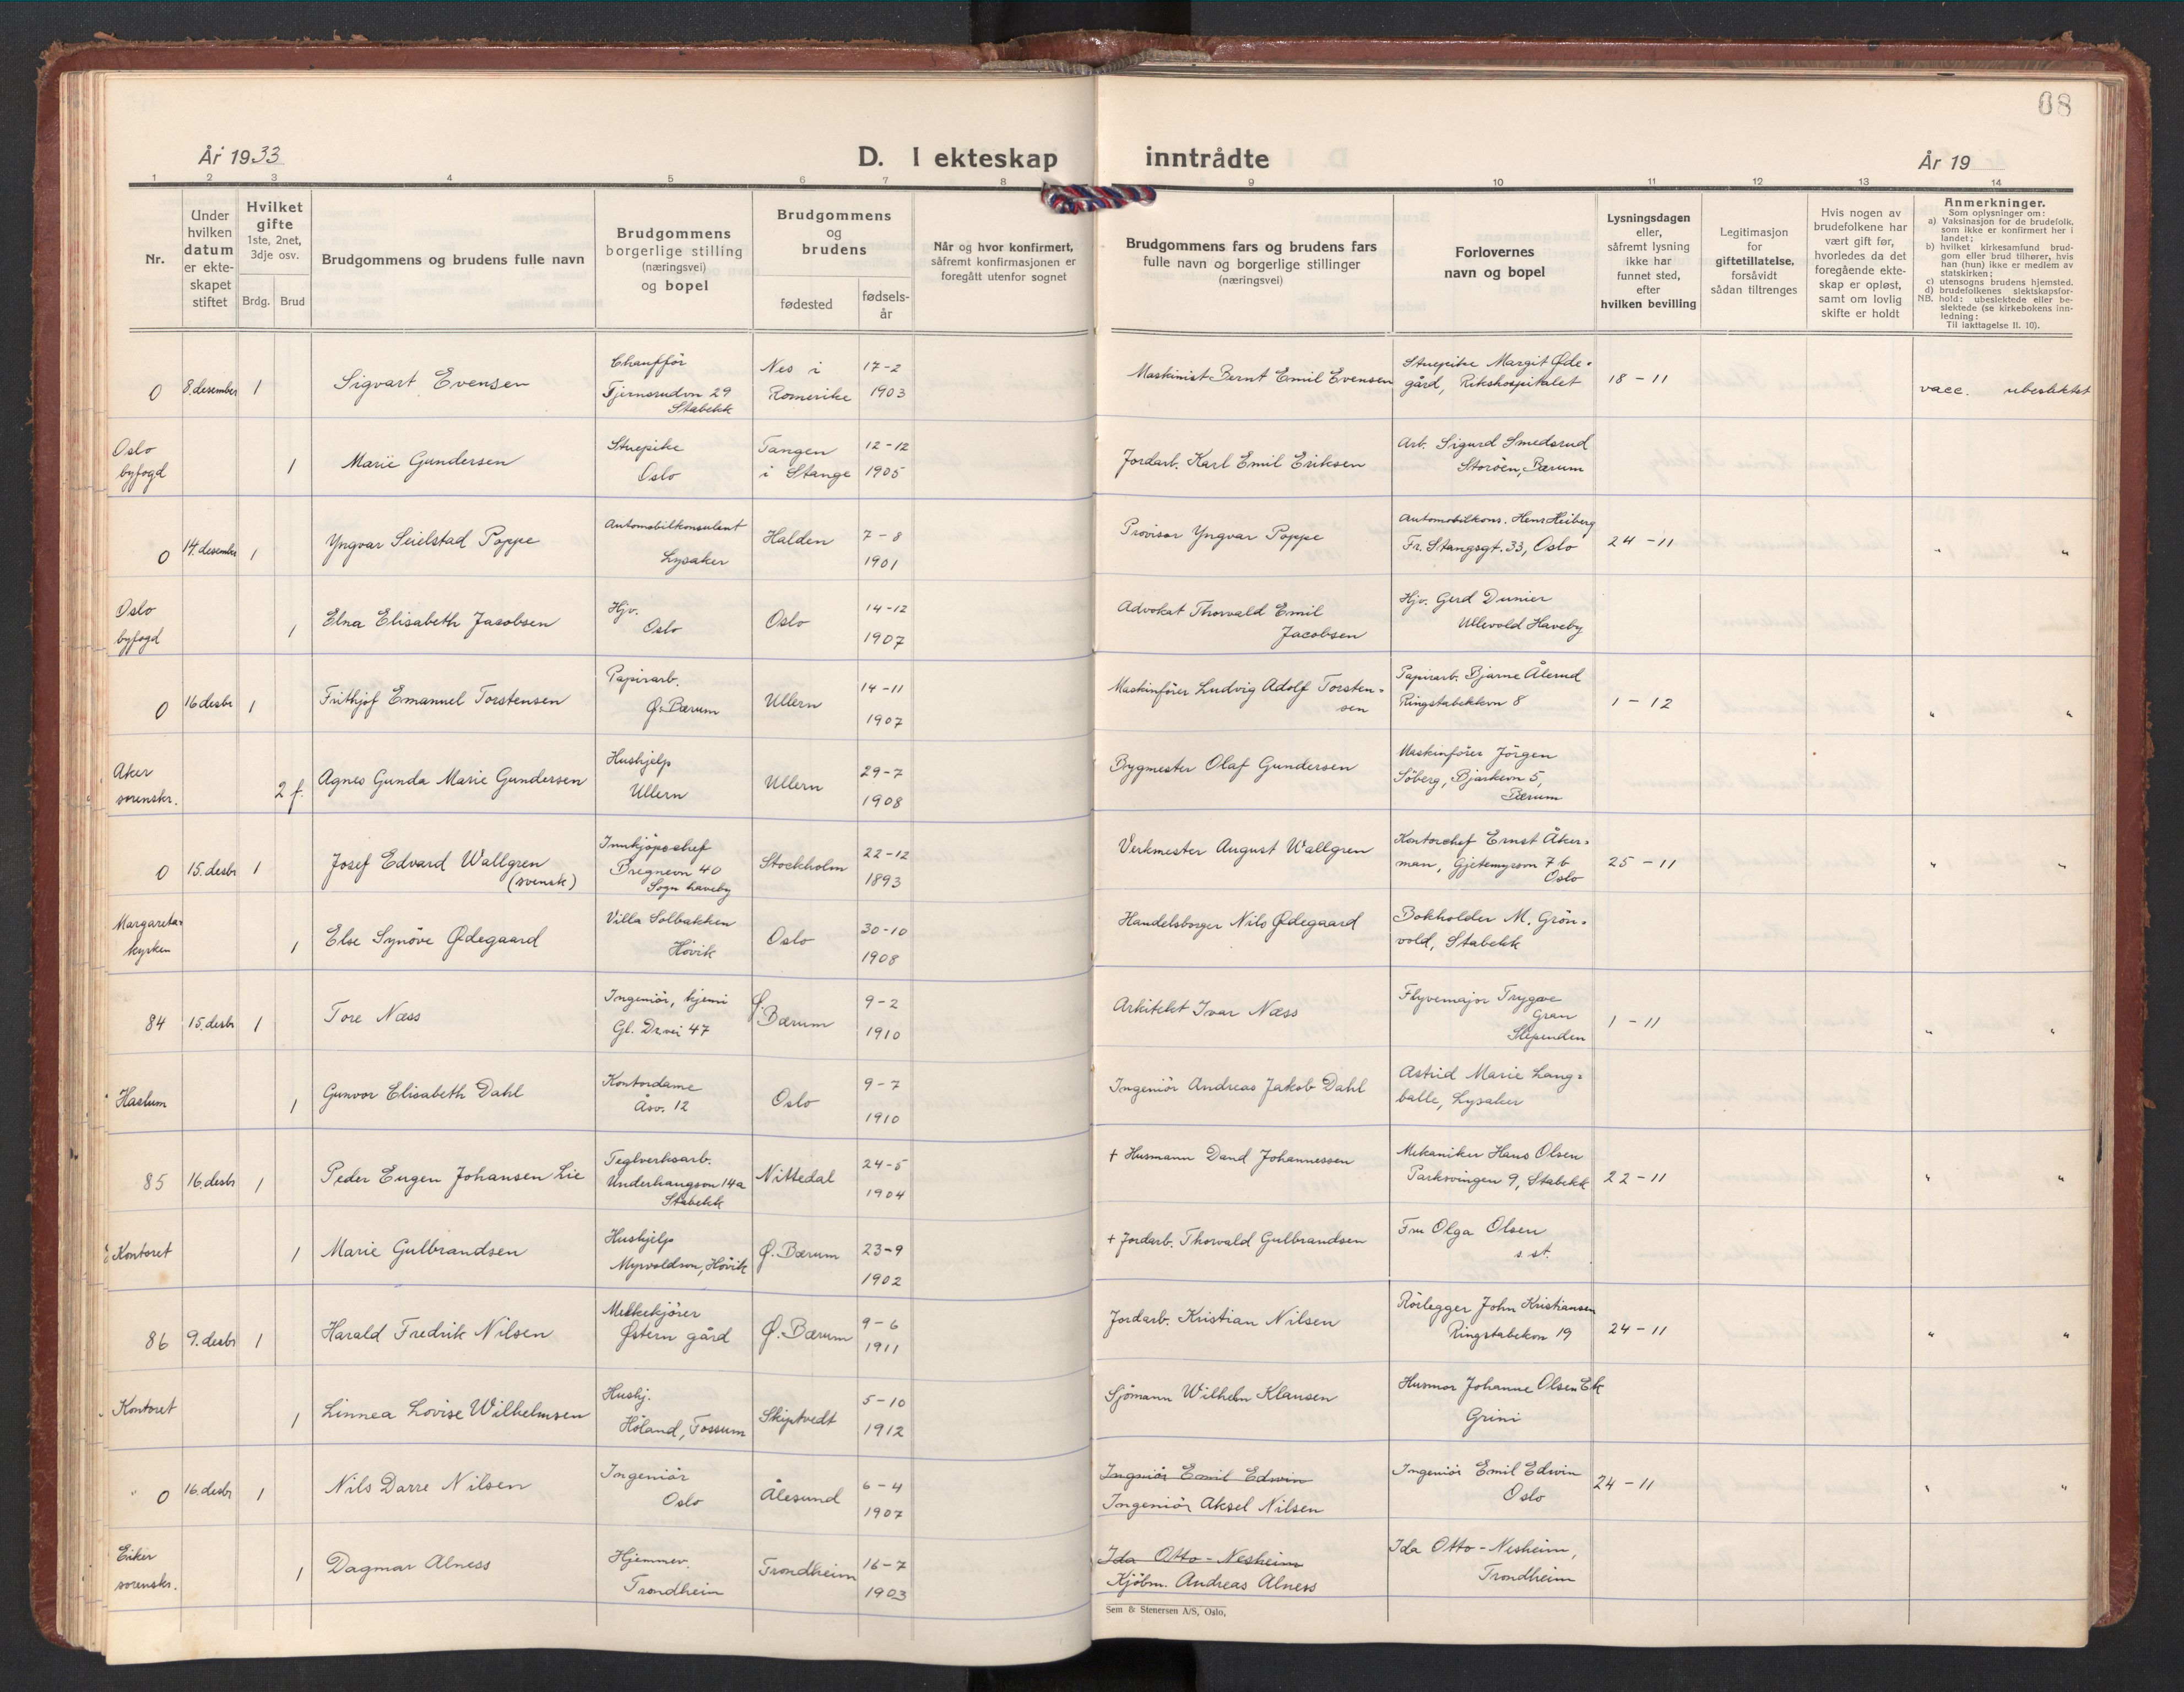 08
År 1933
D. I ekteskap inntrådte
År 19
1 2 3 4 5 6 7 8 9 10 11 12 13 14
Nr.
Under
hvilken
datum
er ekte-
skapet
stiftet
Hvilket
gifte
1ste, 2net,
3dje osv.
Brdg. Brud
Brudgommens og brudens fulle navn
Brudgommens
borgerlige stilling
(næringsvei)
og bopel
Brudgommens
og
brudens
fødested
fødsels-
år
Når og hvor konfirmert,
såfremt konfirmasjonen er
foregått utenfor sognet
Brudgommens fars og brudens fars
fulle navn og borgerlige stillinger
(næringsvei)
Forlovernes
navn og bopel
Lysningsdagen
eller,
såfremt lysning
ikke har
funnet sted,
efter
hvilken bevilling
Legitimasjon
for
giftetillatelse,
forsåvidt
sådan tiltrenges
Hvis nogen av
brudefolkene har
vært gift før,
hvorledes da det
foregående ekte-
skap er opløst,
samt om lovlig
skifte er holdt
Anmerkninger.
Som oplysninger om:
a) Vaksinasjon for de brudefolk,
som ikke er konfirmert her i
landet;
b) hvilket kirkesamfund brud-
gom eller brud tilhører, hvis
han (hun) ikke er medlem av
statskirken;
c) utensogns brudens hjemsted.
d) brudefolkenes slektskapsfor-
NB. hold: ubeslektede eller be-
slektede (se kirkebokens inn-
ledning:
Til iakttagelse II. 10).
0 8. desember 1 Sigvart Evensen
Chaufför
Fjernsrudvn 29
Stabekk
Nes i
Romerike
17-2
1903
Maskinist Bernt Emil Evensen
Stuepike Margit Øde-
gård, Rikshospitalet
18-11
vacc. ubeslektet
Oslo
byfogd
1 Marie Gundersen
Stuepike
Oslo
Tangen
i Stange
12-12
1905
Jordarb. Karl Emil Eriksen
Arb. Sigurd Smedsrud
Storöen, Bærum
0 14. desember 1 Yngvar Seielstad Poppe
Automobilkonsulent
Lysaker
Halden
7-8
1901
Provisor Yngvar Poppe
Automobilkons. Hens Heiberg
Fr. Stangsgt. 33, Oslo
24-11
" "
Oslo
byfogd
1 Elna Elisabeth Jacobsen
Hjv.
Oslo
Oslo
14-12
1907
Advokat Thorvald Emil
Jacobsen
Hjv. Gerd Dunier
Ullevold Haveby
0 16 desbr 1 Frithjof Emanuel Torstensen
Papirarb.
Ø. Bærum
Ullern
14-11
1907
Maskinfører Ludvig Adolf Torsten-
sen
Papirarb. Bjarne Ålerud
Ringstabekkvn 8
1-12
" "
Aker
sorenskr.
2 f. Agnes Gunda Marie Gundersen
Hushjelp
Ullern
Ullern
29-7
1908
Bygmester Olaf Gundersen
Maskinfører Jörgen
Söberg, Bjerkevn 5,
Bærum
0 15. desbr 1 Josef Edvard Wallgren
(svensk)
Innkjöpschef
Bregnevn 40
Sogn haveby
Stockholm
22-12
1893
Verkmester August Wallgren
Kontorchef Ernst Åker-
man, Gjetemyrsvn 7 b
Oslo
25-11
" "
Margareta-
kyrken
1 Else Synöve Ødegaard
Villa Solbakken
Hövik
Oslo
30-10
1908
Handelsborger Nils Ødegaard
Bokholder M. Grön-
vold, Stabekk
84 15. desbr 1 Tore Næss
Ingeniör, kjemi
Gl. Dr.vei 47
Ø.
Bærum
9-2
1910
Arkitekt Ivar Næss
Flyvemajor Trygve
Gran
Slependen
1-11
" "
Haslum
1 Gunvor Elisabeth Dahl
Kontordame
Åsv. 12
Oslo
9-7
1910
Ingeniör Andreas Jakob Dahl
Astrid Marie Lang-
balle, Lysaker
85 16. desbr 1 Peder Eugen Johansen Lie
Teglverksarb.
Underhaugsvn 14a
Stabekk
Nittedal
24-5
1904
+ Husmann David Johannessen
Mekaniker Hans Olsen
Parksvingen 9, Stabekk
22-11
" "
Kontoret
1 Marie Gulbrandsen
Hushjelp
Myrvoldsvn, Hövik
Ø. Bærum
23-9
1902
+ Jordarb. Thorvald Gulbrandsen
Fru Olga Olsen
s. st.
86 9. desbr 1 Harald Fredrik Nilsen
Melkekjörer
Østern gård
Ø. Bærum
9-6
1911
Jordarb. Kristian Nilsen
Rörlegger John Kristiansen
Ringstabekvn 19
24-11
" "
Kontoret
1 Linnea Lovise Wilhelmsen
Hushj.
Höland, Fossum
Skiptvedt
5-10
1912
Sjömann Wilhelm Klausen
Husmor Johanne Olsen Ek
Grini
0 16. desbr 1 Nils Darre Nilsen
Ingeniör
Oslo
Ålesund
6-4
1907
Ingeniör Emil Edwin
Ingeniör Aksel Nilsen
Ingeniör Emil Edwin
Oslo
24-11
" "
Eiker
sorenskr.
1 Dagmar Alness
Hjemmev.
Trondheim
Trondheim
16-7
1903
Ida Otto-Nesheim
Kjöbm. Andreas Alness
Ida Otto-Nesheim,
Trondheim
Sem & Stenersen A/S, Oslo,